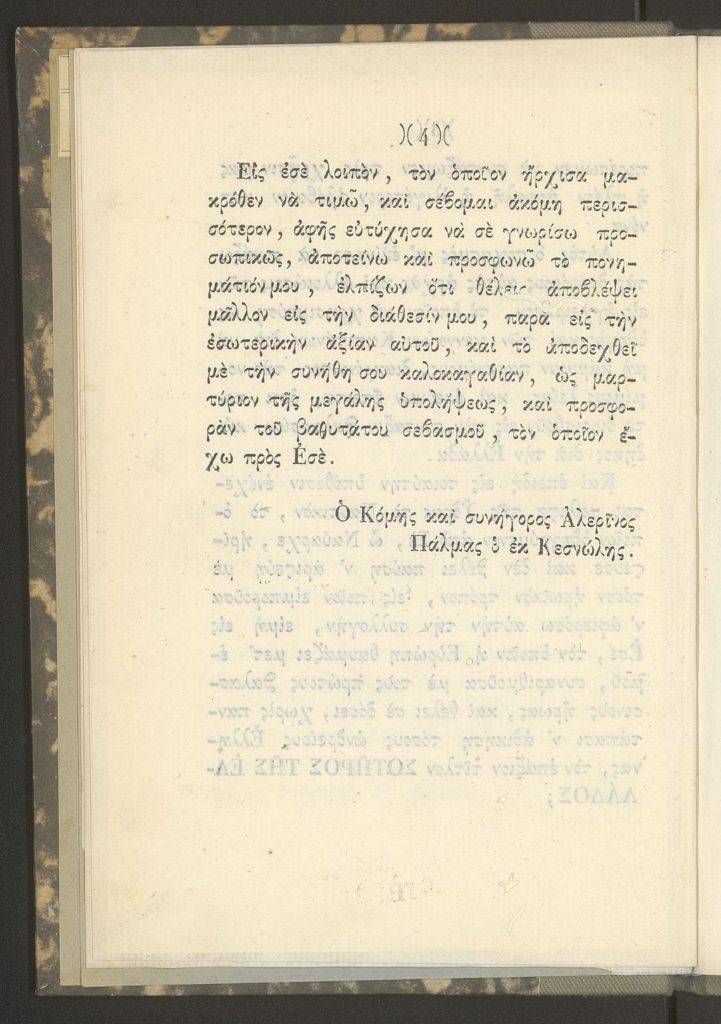 )( 4 )(
Εἰς ἐσὲ λοιπὸν, τὸν ὁποῖον ἤρχισα μα-
κρόθεν νὰ τιμῶ, καὶ σέβομαι ἀκόμη περισ-
σότερον, ἀφῆς εὐτύχησα νὰ σὲ γνωρίσω προ-
σωπικῶς, ἀποτείνω καὶ προσφωνῶ τὸ πονη-
μάτιόν μου, ἐλπίζων ὅτι θέλεις ἀποβλέψει
μᾶλλον εἰς τὴν διάθεσίν μου, παρὰ εἰς τὴν
ἐσωτερικὴν ἀξίαν αὐτοῦ, καὶ τὸ ἀποδεχθεῖ
μὲ τὴν συνήθη σου καλοκαγαθίαν, ὡς μαρ-
τύριον τῆς μεγάλης ὑπολήψεως, καὶ προσφο-
ρὰν τοῦ βαθυτάτου σεβασμοῦ, τὸν ὁποῖον ἔ-
χω πρὸς Ἐσὲ.
Ὁ Κόμης καὶ συνήγορος Ἀλερῖνος
Πάλμας ὁ ἐκ Κεσνώλης.